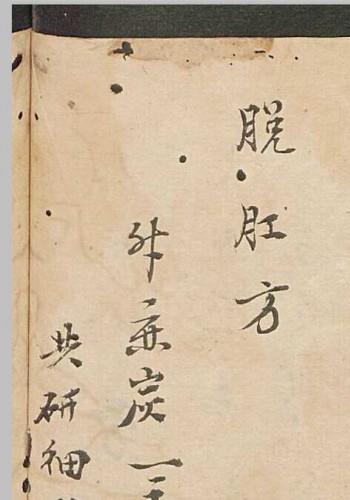 脱肛方
升麻炭一
共研细